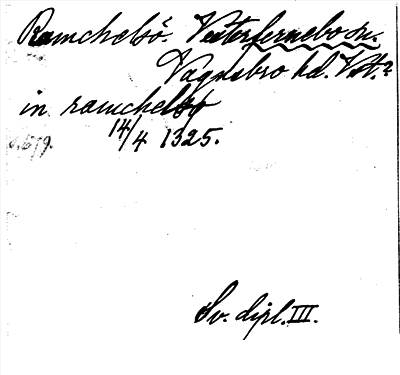 Ramchelsö. Vesterfernebo sn.
Vagnsbro hd. Vst.?
in ramchelsø
14/4 1325.
Sv. dipl. III.